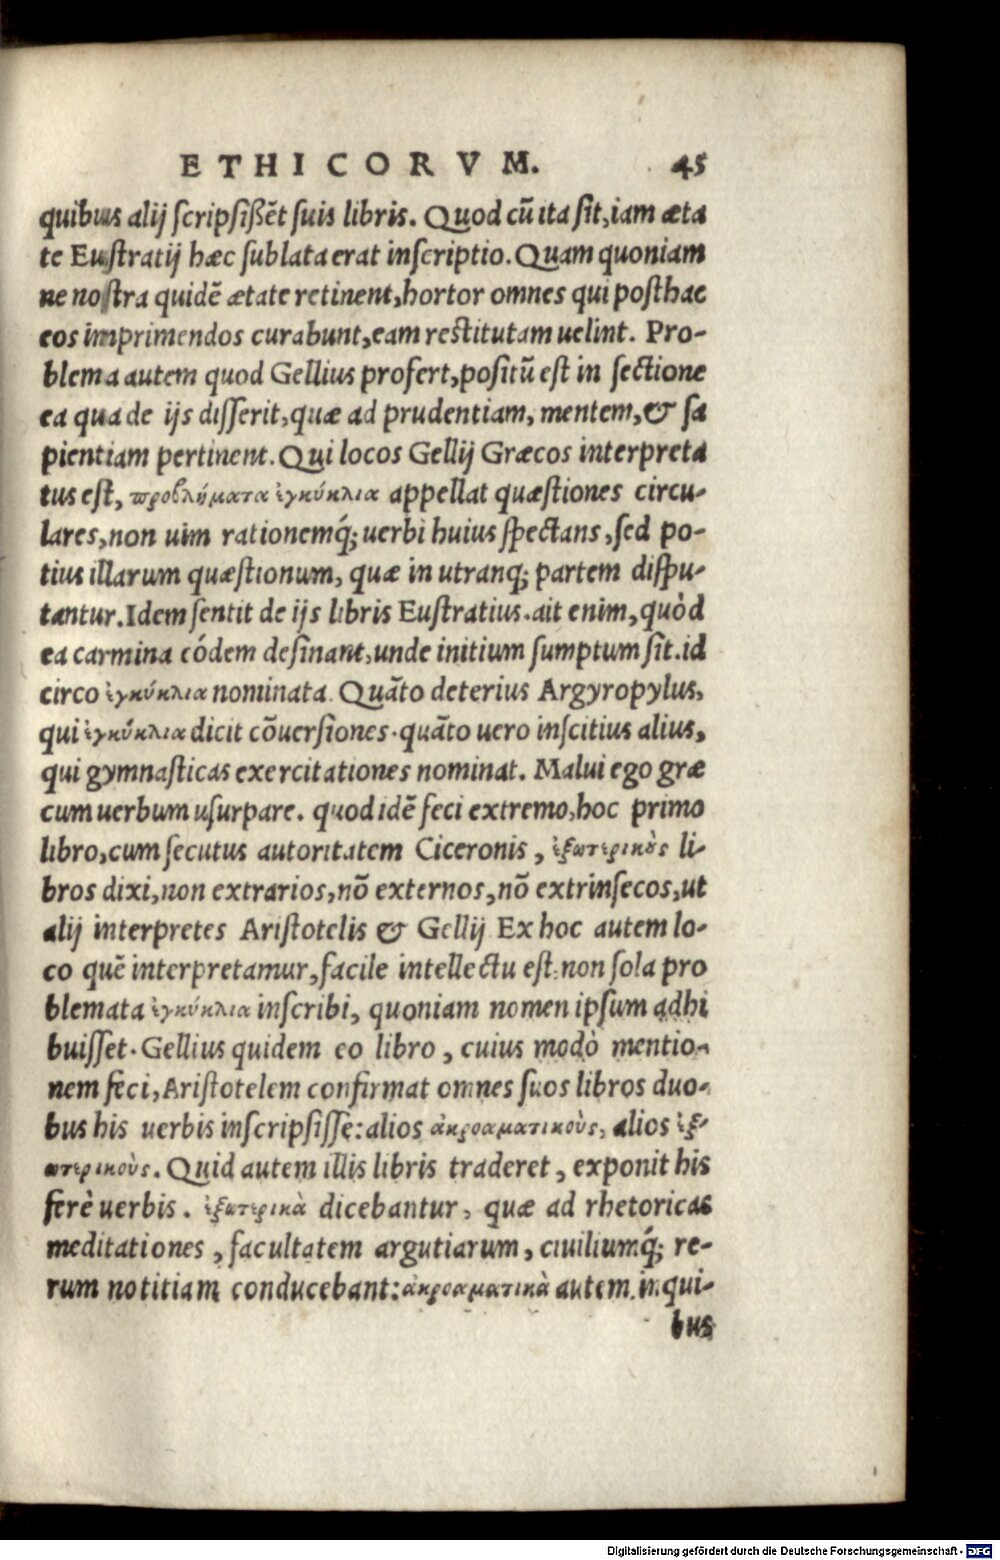 ETHICORVM. 45
quibus alij scripsißẽt suis libris. Quod cũ ita sit, iam æta
te Eustratij hæc sublata erat inscriptio. Quam quoniam
ne nostra quidẽ ætate retinent, hortor omnes qui posthac
eos imprimendos curabunt, eam restitutam uelint. Pro-
blema autem quod Gellius profert, positũ est in sectione
ea qua de ijs disserit, quæ ad prudentiam, mentem, & sa
pientiam pertinent. Qui locos Gellij Græcos interpreta
tus est, προβλήματα ἐγκύκλια appellat quæstiones circu-
lares, non uim rationemq́; uerbi huius spectans, sed po-
tius illarum quæstionum, quæ in utranq; partem dispu-
tantur. Idem sentit de ijs libris Eustratius. ait enim, quòd
ea carmina eódem desinant, unde initium sumptum sit. id
circo ἐγκύκλια nominata. Quãto deterius Argyropylus,
qui ἐγκύκλια dicit cõuersiones. quãto uero inscitius alius,
qui gymnasticas exercitationes nominat. Malui ego græ
cum uerbum usurpare. quod idẽ feci extremo, hoc primo
libro, cum secutus autoritatem Ciceronis, ἐξωτερικὸς li-
bros dixi, non extrarios, nõ externos, nõ extrinsecos, ut
alij interpretes Aristotelis & Gellij Ex hoc autem lo-
co quẽ interpretamur, facile intellectu est. non sola pro
blemata ἐγκύκλια inscribi, quoniam nomen ipsum adhi
buisset. Gellius quidem eo libro, cuius modò mentio-
nem feci, Aristotelem confirmat omnes suos libros duo-
bus his uerbis inscripsisse: alios ἀκροαματικοὺς, alios ἐξ-
ωτερικοὺς. Quid autem illis libris traderet, exponit his
ferè uerbis. ἐξωτερικὰ dicebantur, quæ ad rhetoricas
meditationes, facultatem argutiarum, ciuiliumq́; re-
rum notitiam conducebant: ἀκροαματικὰ autem in qui-
bus
Digitalisierung gefördert durch die Deutsche Forschungsgemeinschaft - DFG